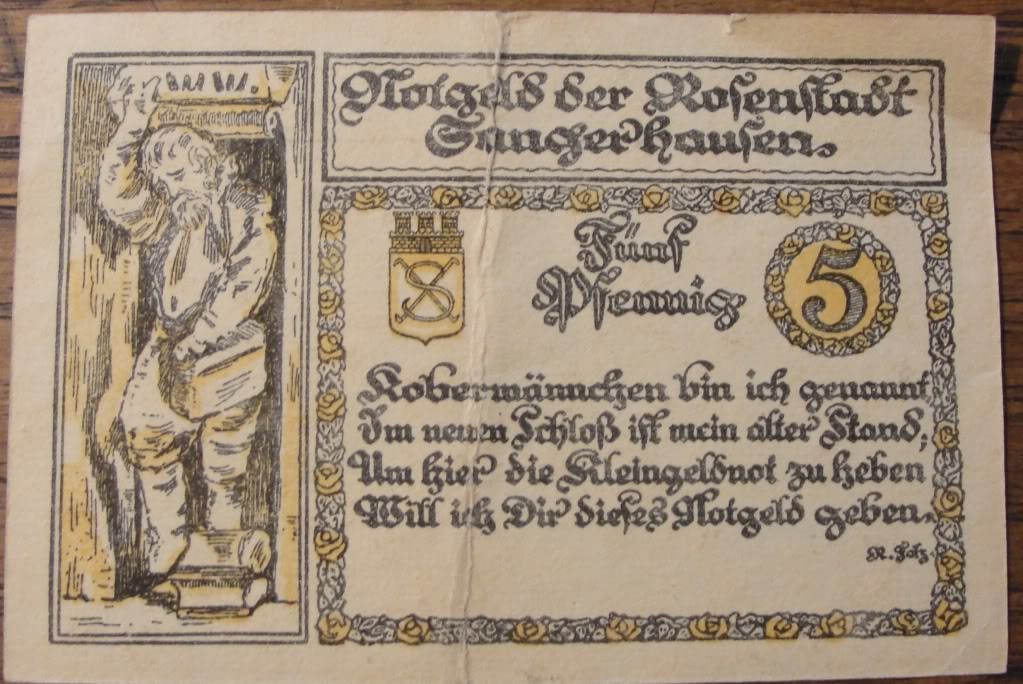 Notgeld der Rosenstadt
Sangerhausen.
S
Fünf
Pfennig
5
Kobermännchen bin ich genannt,
Im neuen Schloß ist mein alter Stand,
Um hier die Kleingeldnot zu heben
Will ich Dir dieses Notgeld geben.